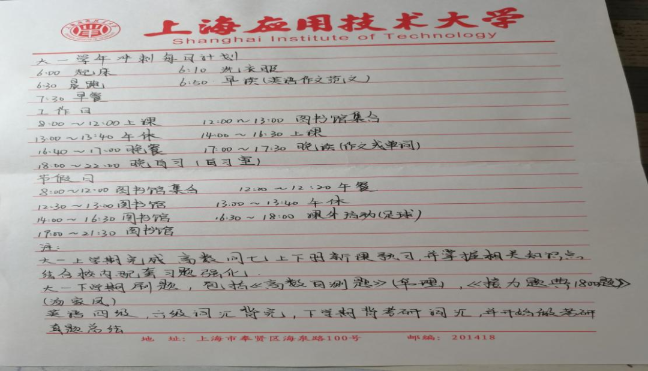 上海应用技术大学
Shanghai Institute of Technology
大一学年冲刺每日计划
6:00 起床 6:10 洗衣服
6:30 晨跑 6:50 早读(英语作文范文)
7:30 早餐
工作日
8:00~12:00 上课 12:00~13:00 图书馆集合
13:00~13:40 午休 14:00~16:30 上课
16:40~17:00 晚餐 17:00~17:30 晚读(作文或单词)
18:00~22:00 晚自习(自习室)
节假日
8:00~12:00 图书馆集合 12:00~12:20 午餐
12:30~13:00 图书馆 13:00~13:40 午休
14:00~16:30 图书馆 16:30~18:00 课外活动(足球)
19:00~21:30 图书馆
注:
大一上学期完成 高数 上下册新课 并掌握相关知识点,
结合校内配套习题强化.
大一下学期刷题,包括《高数 测题》 《接力题典1800题》
英语四级,六级词汇背完,下学期背考研词汇,并开始做考研
真题总结
地 址: 上海市奉贤区海泉路100号 邮编: 201418